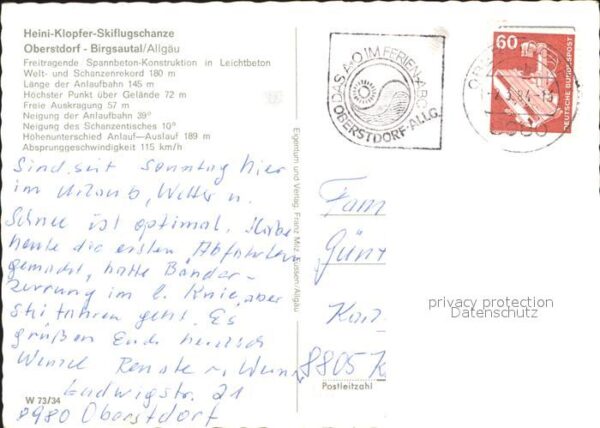 Heini-Klopfer-Skiflugschanze
Oberstdorf - Birgsautal/Allgäu
Freitragende Spannbeton-Konstruktion in Leichtbeton
Welt- und Schanzenrekord 180 m
Länge der Anlaufbahn 145 m
Höchster Punkt über Gelände 72 m
Freie Auskragung 57 m
Neigung der Anlaufbahn 39°
Neigung des Schanzentisches 10°
Höhenunterschied Anlauf—Auslauf 189 m
Absprunggeschwindigkeit 115 km/h
Sind seit Sonntag hier
im Urlaub, Wetter u.
Schnee ist optimal. Habe
heute die ersten Abfahrten
gemacht, hatte Bänder-
zerrung im l. Knie, aber
Ski fahren geht. Es
grüßen Euch herzlich
Renate u.
Ludwigstr. 21
8980 Oberstdorf
W 73/34
Eigentum und Verlag Franz Milz, /Allgäu
DAS A-O IM FERIEN-ABC
OBERSTDORF-ALLG.
60
DEUTSCHE BUNDESPOST
Fam
Günt
8805 K
Postleitzahl
privacy protection
Datenschutz